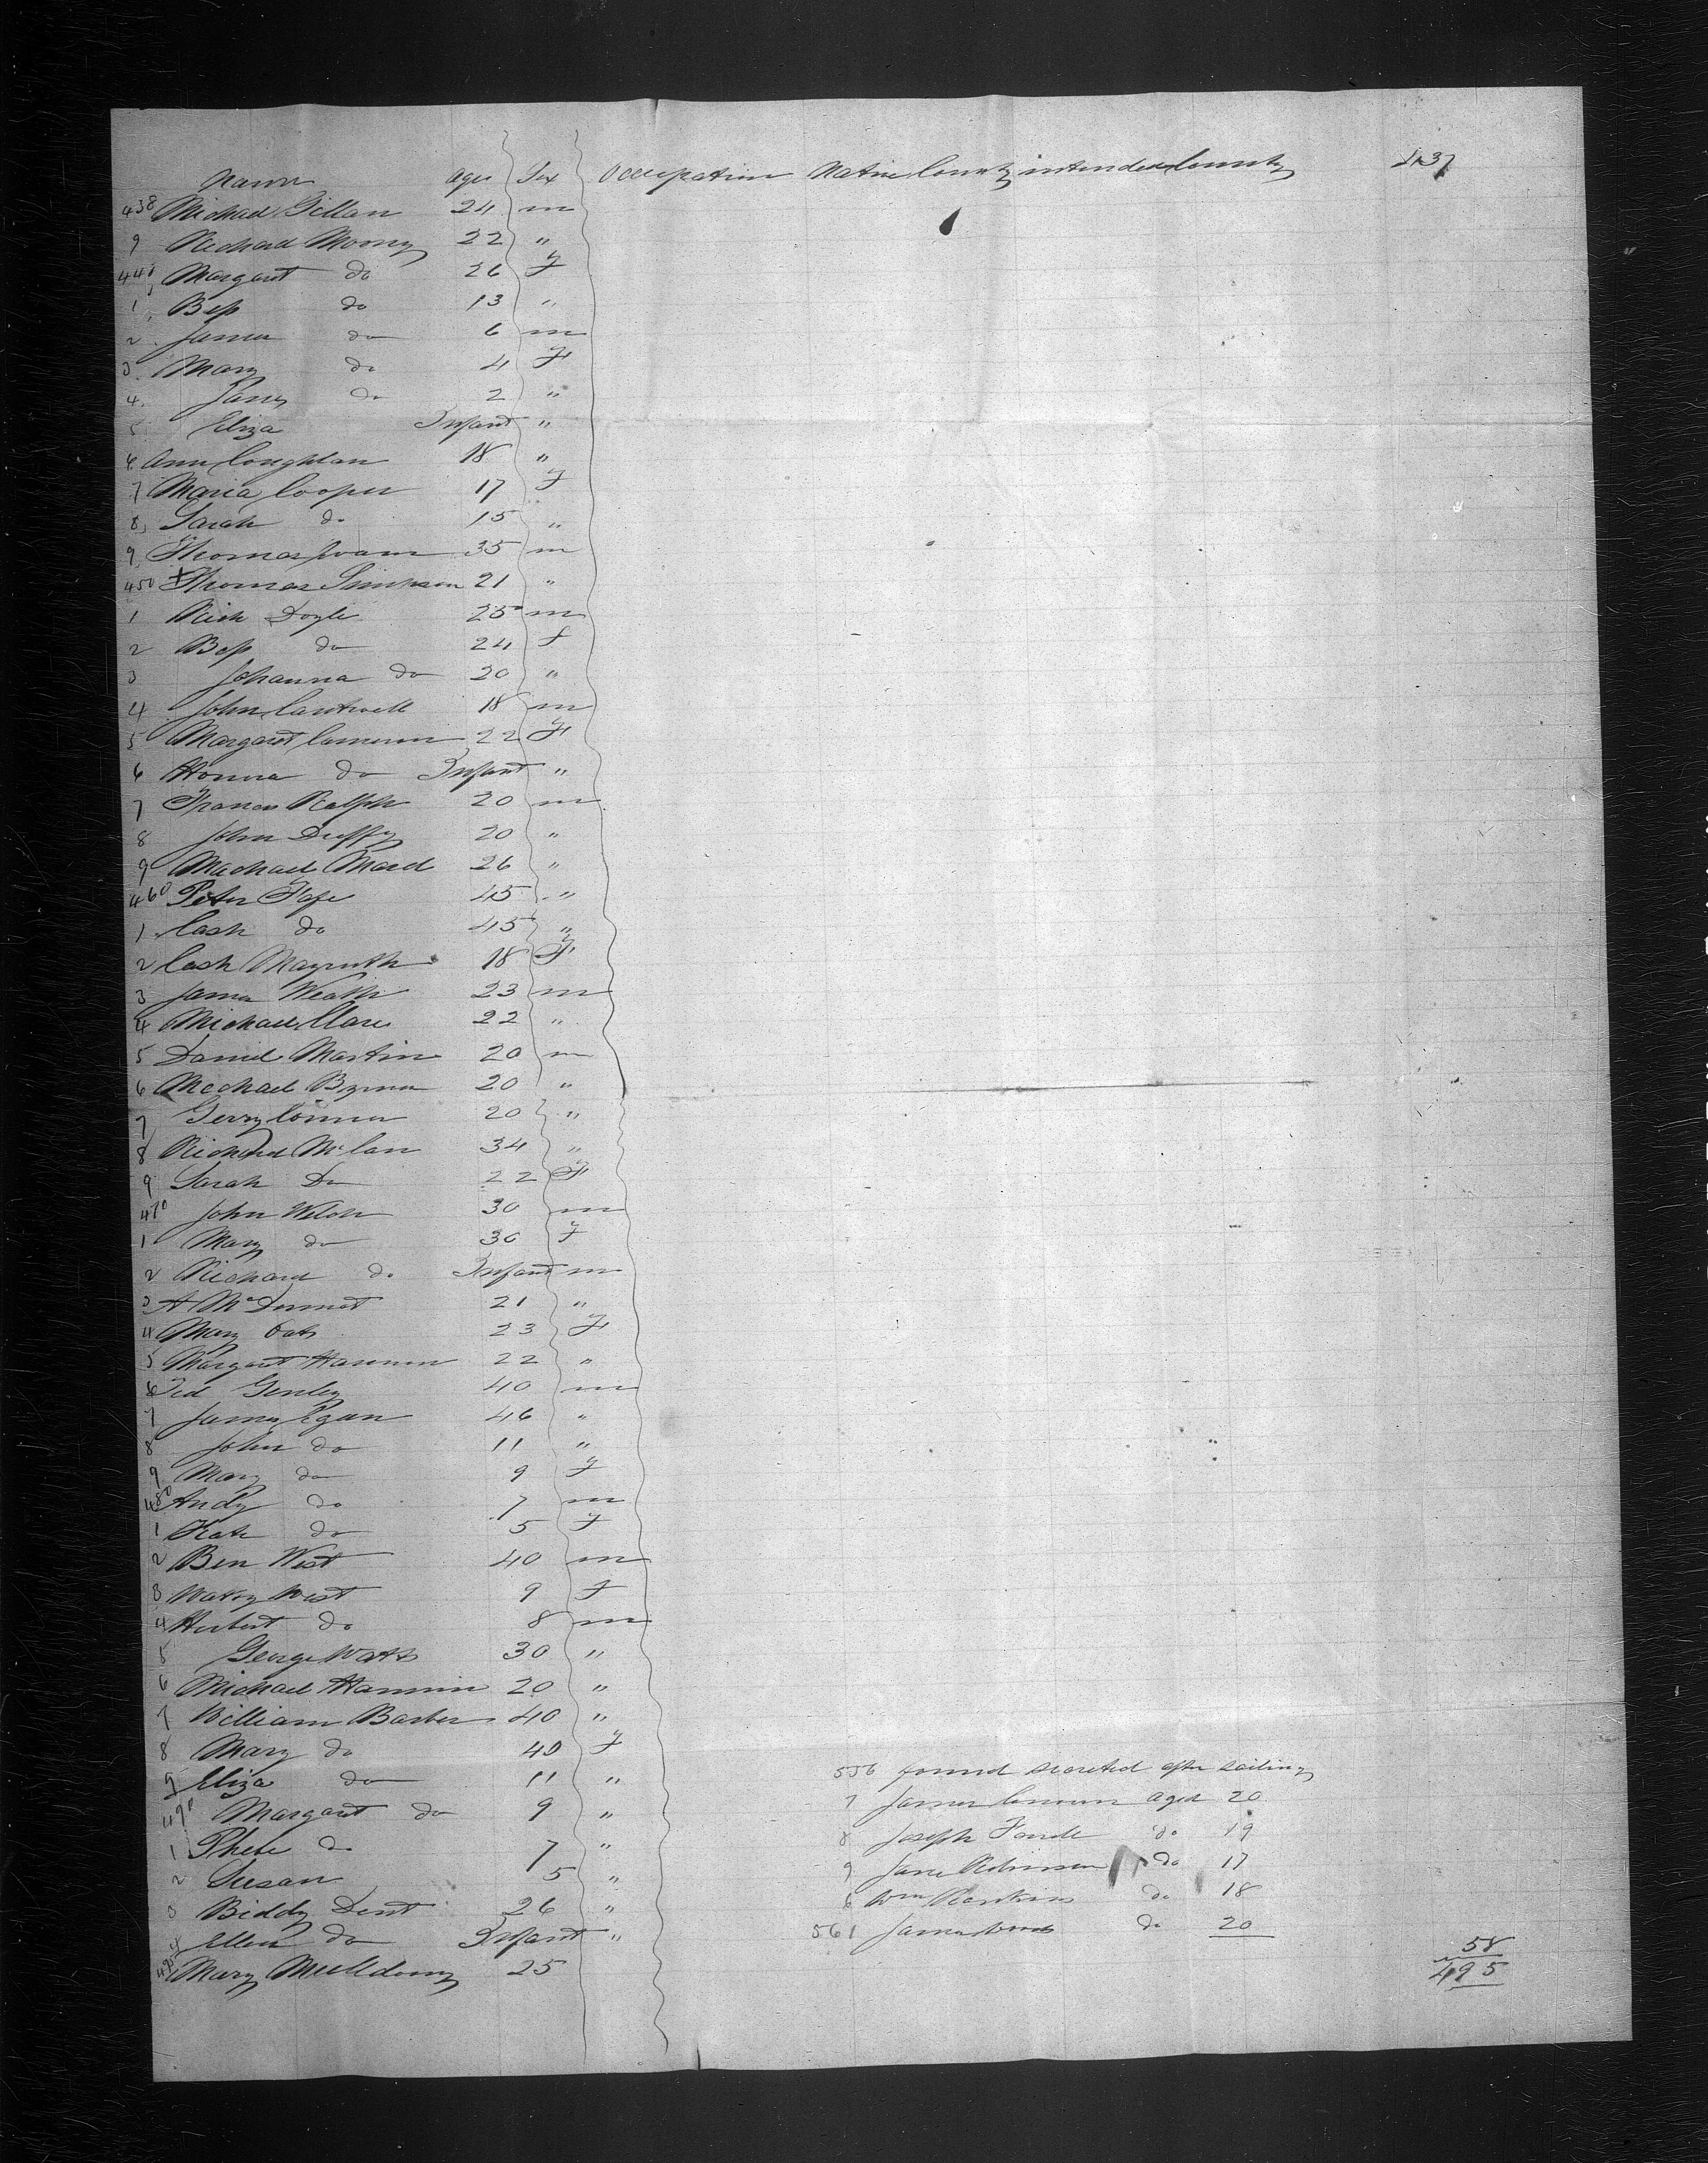 Name Ages Sex Occupation Native County intended County 437
438 Michael Gillan 24 m
9 Richard Moony 22 "
440 Margaret do 26 F
1 Bess do 13 "
2 James do 6 m
3 Mary do 4 F
4 Jany do 2 "
5 Eliza Infant "
6 Ann Coughlan 18 "
7 Maria Cooper 17 F
8 Sarah do 15 "
9 Thomas 35 m
450 Thomas Simpson 21 "
1 Rich Doyle 25 m
2 Bess do 24 f
3 Johanna do 20 "
4 John Cantwell 18 m
5 Margaret Cameron 22 F
6 Honora do Infant "
7 Frances Ralph 20 m
8 John Duffy 20 "
9 Machael Mard 26 "
460 Peter 45 "
1 Cash do 45 "
2 Cash 18 F
3 James 23 m
4 Michael Clare 22 "
5 Daniel Martin 20 m
6 Michael Byrne 20 "
7 Gerry Connor 20 "
8 Richard McCan 34 "
9 Sarah Do 22 F
470 John Welch 30 m
1 Mary do 30 F
2 Richard do Infant m
3 A McDermet 21 "
4 Mary Oats 23 F
5 Margaret Hannon 22 "
6 Ted Genley 40 m
7 James Egan 46 "
8 John do 11 "
9 Mary do 9 F
480 Andy do 7 m
1 Kate do 5 F
2 Ben West 40 m
3 West 9 F
4 Herbert do 8 m
5 George Watts 30 "
6 Michael Hannin 20 "
7 William Barber 40 "
8 Mary do 40 F
9 Eliza do 11 "
490 Margaret do 9 "
1 Phebe do 7 "
2 Susan 5 "
3 Biddy Dent 26 "
4 Ellen do Infant "
495 Mary Muldoony 25
556 found secreted after sailing
7 James aged 20
8 Joseph do 19
9 Jane Robinson do 17
6 Wm do 18
561 James do 20
58
495